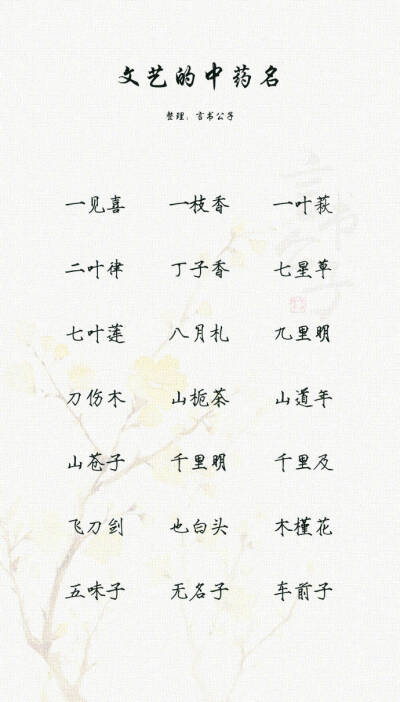 文艺的中药名
整理：言书公子
一见喜 一枝香 一叶萩
二叶律 丁子香 七星草
七叶莲 八月札 九里明
刀伤木 山栀茶 山道年
山苍子 千里明 千里及
飞刀剑 也白头 木槿花
五味子 无名子 车前子
言书公子